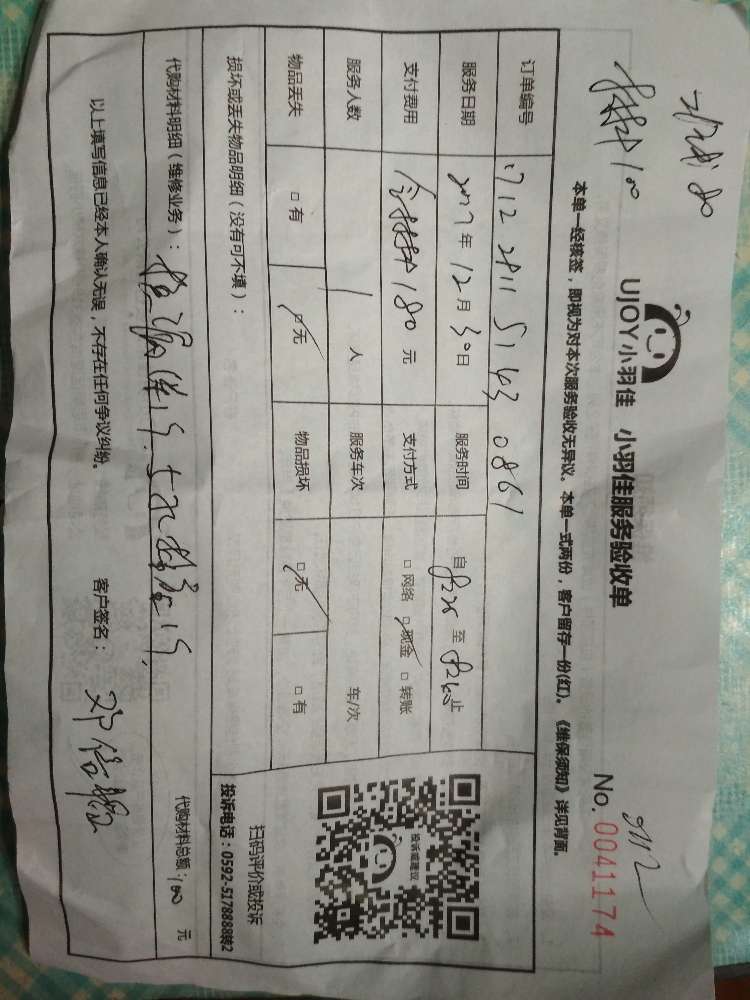 工时费 80
材料 100
UJOY 小羽佳
小羽佳服务验收单
No. 0041174
本单一经核签，即视为对本次服务验收无异议。本单一式两份，客户留存一份(红)。《维保须知》详见背面。
订单编号
服务日期 2017年 12月 30日 服务时间 自 至 止
支付费用 含材料180元 支付方式 □网络 □现金 □转账
服务人数 1 人 服务车次 车/次
物品丢失 □有 □无 物品损坏 □无 □有
损坏或丢失物品明细（没有可不填）：
投诉或建议
扫码评价或投诉
投诉电话：0592-5178888转2
代购材料明细（维修业务）：
代购材料总额：100 元
以上填写信息已经本人确认无误，不存在任何争议纠纷。
客户签名：